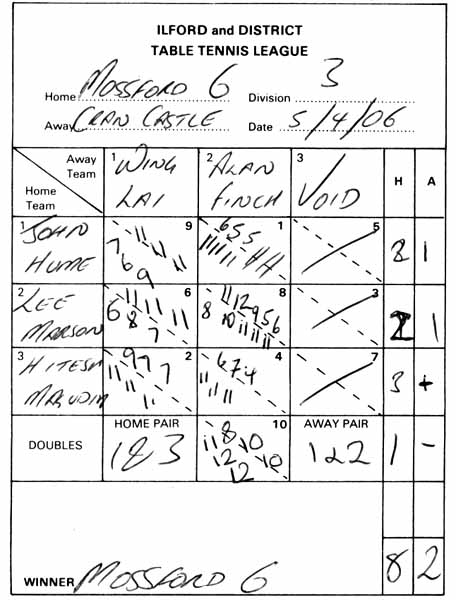 ILFORD and DISTRICT
TABLE TENNIS LEAGUE
Home MOSSFORD 6 Division 3
Away CRAN CASTLE Date 5/4/06
Away Team
Home Team
1 WING LAI
2 ALAN FINCH
3 VOID
H A
1 JOHN HUME
9
11 11 11
7 6 9
1
6 5 5
11 11 11
5
2 1
2 LEE MARSON
6
11 11 11
6 8 7
8
11 12 9 5 6
8 10 11 11 11
3
2 1
3 HITESH
2
9 7 7
11 11 11
4
6 7 4
11 11 11
7
3
DOUBLES
HOME PAIR
1&3
10
8 10 10
11 12 12
AWAY PAIR
1&2
1 -
8 2
WINNER MOSSFORD 6